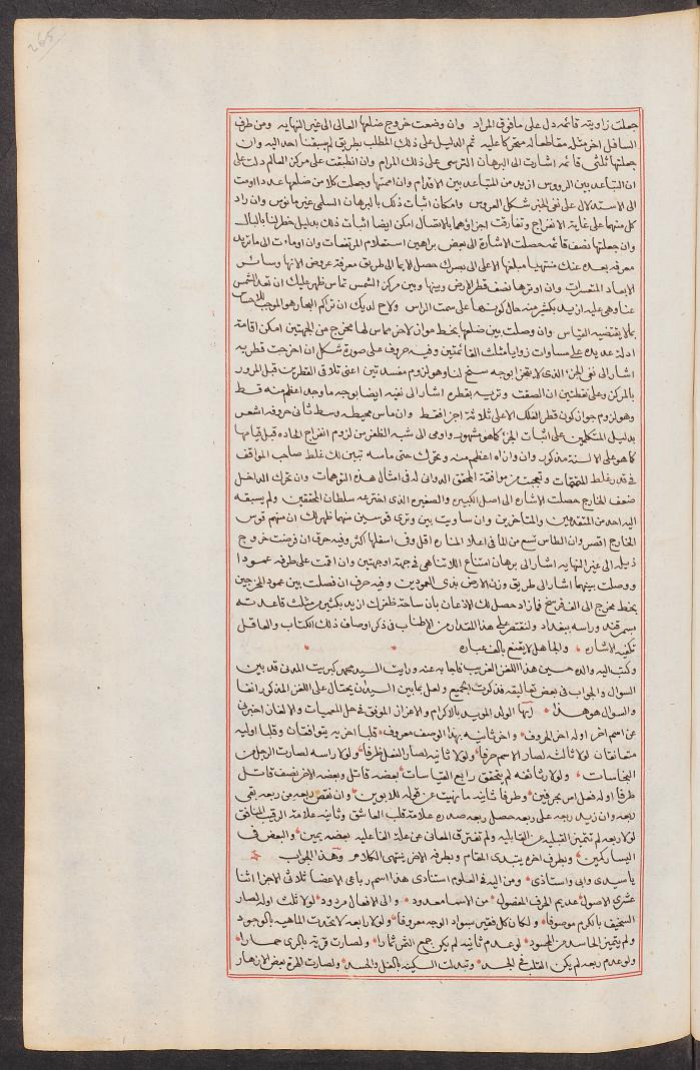 265
جعلت زاويته قائمه دل على مافوق المراد وان وضعت خروج ضلعها العالى الى غير النهايه ومن طرف
السافل اخر مثله مقاطعا له متحركا عليه تم الدليل على ذلك المطلب بطريق لم يسبقنا احد اليه وان
جعلتها ثلثى قائمه اشارت الى البرهان الترسى على ذلك المرام وان انطبقت على مركز العالم دلت على
ان التباعد بين الرووس ازيد من المتباعد بين الاقدام وان اتممتها وجعلت كلا من ضلعها عددا اومت
الى الاستدلال على نفى الجزء بشكل العروس وامكان اثبات ذلك بالبرهان السلمى غير مانوس وان زاد
كل منهما على غاية الانفراج وتفارقت اجزاؤهما بالاتصال امكن ايضا اثبات ذلك بدليل خطر لنا بالبال
وان جعلتها نصف قائمه حصلت الاشارة الى بعض براهين استعلام المرتفعات وان اومات الى ما تريد
معرفه بعده عنك منتهيا مبلغها الاعلى الى بصرك حصل الايما الى طريق معرفة عروض الانها وسائر
الابعاد المتعسرات وان اوترها نصف قطر الارض وبينها وبين مركز الشمس تماس ظهر عليك ان بعد الشمس
عنا وهى عليه ازيد بكثير منه حال كونها على سمت الراس ولاح لديك ان تراكم البخار هو الموجب
بما لا يقتضيه القياس وان وصلت بين ضلعها بخط مواز لاخر مماس لها مخرج من الجهتين امكن اقامة
ادلة عديده على مساوات زوايا مثلث القائمتين وفيه حروف على صورة شكل ان اخرجت قطريه
اشار الى نفى الجزء الذى لا يتجزا بوجه سنح لنا وهو لزوم مفسدتين اعنى تلاقى القطرين قبل المرور
بالمركز وعلى نقطتين ان الصقت وتربيه بقطره اشار الى نفيه ايضا بوجه ما وجد اعظم منه قط
وهو لزوم جواز كون قطر الفلك الاعلى ثلاثة اجزا فقط وان ماس محيطه وسط ثانى حروفه اشعر
بدليل المتكلمين على اثبات الجزء كما هو مشهور واومى الى شبه الظفر من لزوم انفراج الحاده قبل قيامها
كما هو على الالسنة مذكور وان وازاه اعظم منه وتحرك حتى ماسه تبين لك غلط صاحب المواقف
فى قدر غلط المتممات وتعجبت من موافقة المحقق الدوانى له فى امثال هذه التوهمات وان تحرك الداخل
ضعف الخارج حصلت الاشاره الى اصل الكبيره والصغيره الذى اخترعه سلطان المحققين ولم يسبقه
اليه احد من المتقدمين والمتاخرين وان ساويت بين وترى قوسين منهما ظهر لك ان منهم قوس
الخارج اقصر وان الطاس تسع من الما فى اعلا المناره اقل وفى اسفلها اكثر وفيه حرف ان فرضت خروج
ذيله الى غير النهايه اشار الى برهان امتناع اللاتناهى فى جهة او جهتين وان اقمت على طرفه عمودا
ووصلت بينهما اشار الى طريق وزن الارض بذى العمودين وفيه حرف ان فصلت بين عمود المخرجين
بخط مخرج الى الف فرسخ فازاد حصل لك الاذعان بان مساحة ظفرك ازيد بكثير من مثلث قاعدته
بسمرقند وراسه ببغداد ولنقتصر على هذا المقدار من الاطناب فى ذكر اوصاف ذلك الكتاب والعاقل
تكفيه الاشاره والجاهل لا يقنع بالف عباره
وكتب اليه والده حسين هذا اللغز الغريب فاجابه عنه ورايت السيد محمد كبريت المدنى قد بين
السوال والجواب فى بعض تعاليقه فذكرت الجميع ولعل مابين السيد ان يحتال على اللغز المذكور انفا
والسوال هو هذا ايها الولد المويد بالاكرام والاعزاز الموفق فى حل المعميات والالغاز اخبرنى
عن اسم اخر اوله اخر الحروف واخر ثانيه بهذا الوصف معروف قلبا اخريه يتوافقان وقلبا اوليه
متعانقان لولا ثالثه لصار الاسم حرفا ولولا ثانيه لصار الفعل ظرفا ولولا راسه لصارت الرجل من
النجاسات ولولا رابعه لم يتحقق رابع القياسات بعضه قاتل وبعضه الاخر نصف قاتل
طرفا اوله فعل امر بحرفين وطرفا ثانيه ما نهيت عن قوله للابوين وان نقص ربعه من ربعه بقى
ربعه وان زيد ربعه على ربعه حصل ربعه صدره علامة قلب العاشق وثانيه علامة الرقيب المنافق
لولا ربعه لم تتميز القبليه عن القابليه ولم تفترق المعانى عن علة الفاعليه بعضه يمين والبعض فى
اليسار كمين وبطرف اخره يتبدى المقام وبطرفه الاخر ينتهى الكلام وهذا الجواب
يا سيدى وابى واستاذى ومن اليه فى العلوم استنادى هذا اسم رباعى الاعضا ثلاثى الاجزا اثنا
عشرى الاصول عديم الحرف المفصول من الاسما معدود والى الافعال مردود لولا ثلث اوله لصار
السخيف بالكرم موصوفا ولكان كل فقير بسواد الوجه معروفا ولولا رابعه لا تحدت الماهيه بالوجود
ولم يتميز الحاسد من المحسود لو عدم ثانيه لم يكن جمع الثمر ثمارا ولصارت قرية بالرى حمارا
ولو عدم ربعه لم يكن القلب فى الجسد وتبدلت السكينه بالغل والحسد ولصارت الهرة بعض الازهار